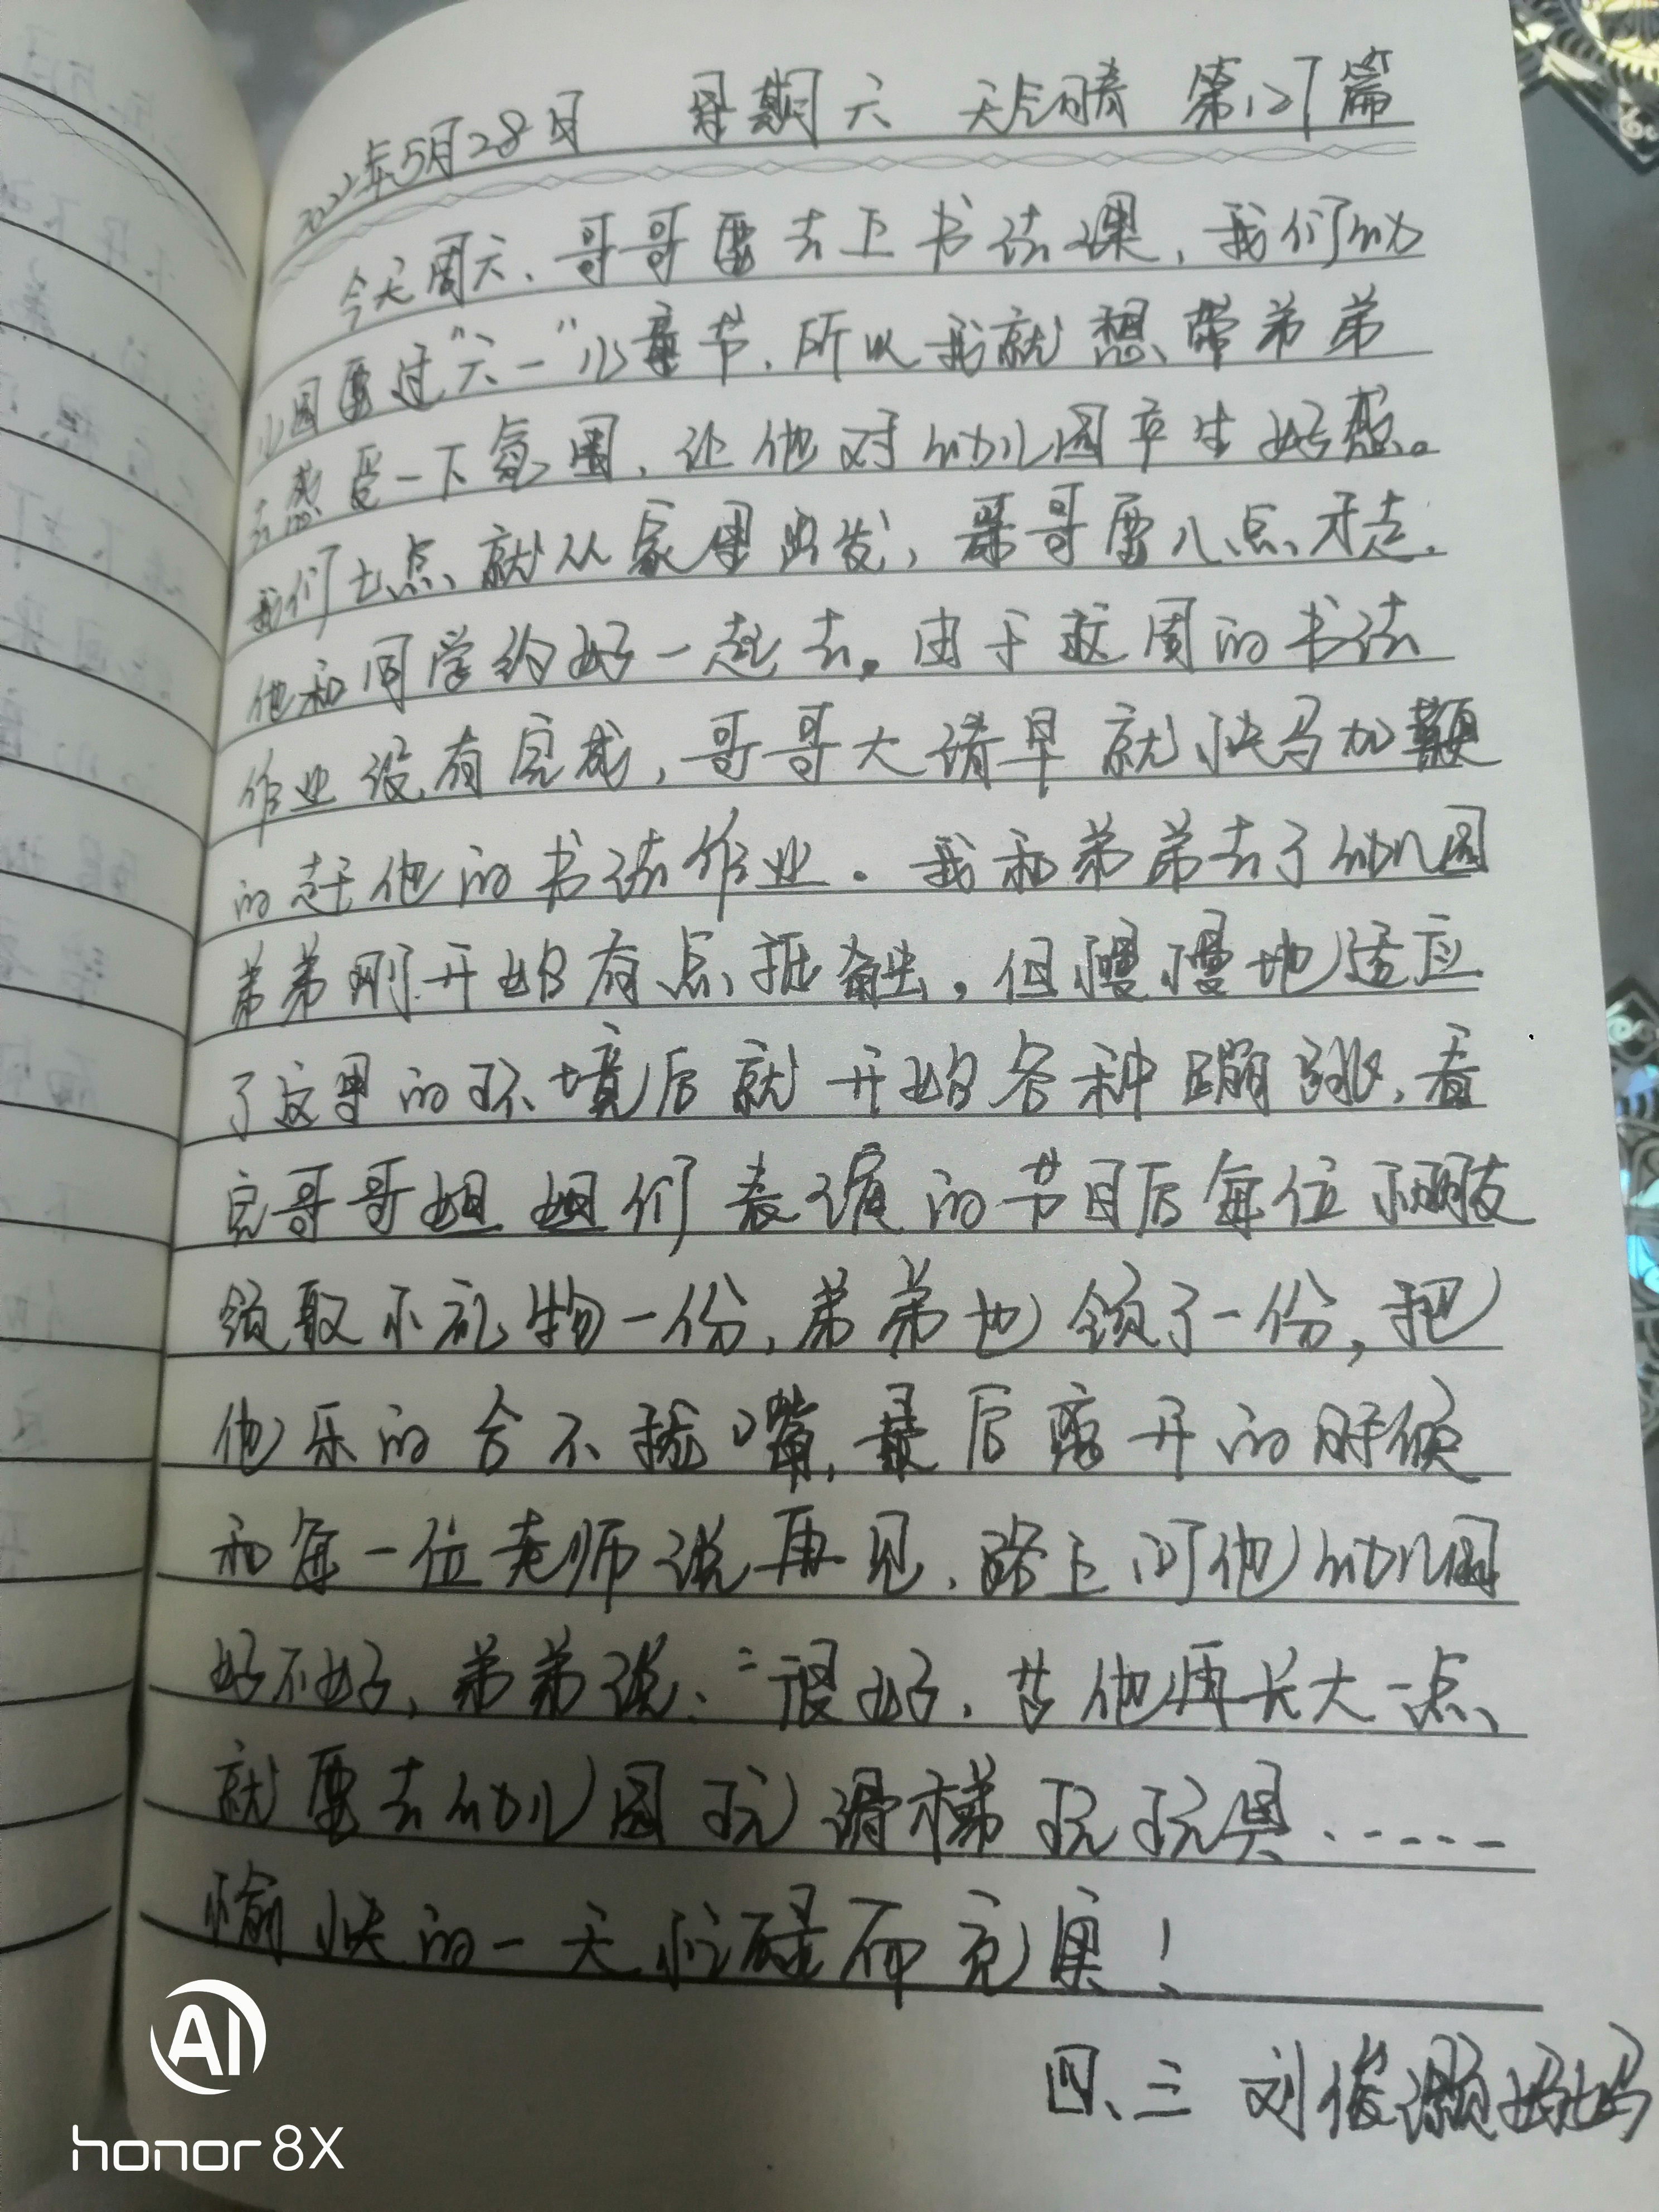 2022年5月28日 星期六 天气晴 第127篇
今天周六、哥哥要去上书法课，我们幼
儿园要过“六一”儿童节，所以我就想带弟弟
去感受一下氛围，让他对幼儿园产生好感。
我们七点就从家里出发，哥哥要八点才走，
他和同学约好一起去。由于这周的书法
作业没有完成，哥哥大清早就快马加鞭
的赶他的书法作业。我和弟弟去了幼儿园
弟弟刚开始有点抵触，但慢慢地适应
了这里的环境后就开始各种蹦跳，看
完哥哥姐姐们表演的节目后每位小朋友
领取小礼物一份，弟弟也领了一份，把
他乐的合不拢嘴，最后离开的时候
和每一位老师说再见，路上问他幼儿园
好不好，弟弟说：“很好，等他再长大一点
就要去幼儿园玩滑梯玩玩具……
愉快的一天忙碌而充实！
四、三 刘俊 妈妈
AI
honor 8X